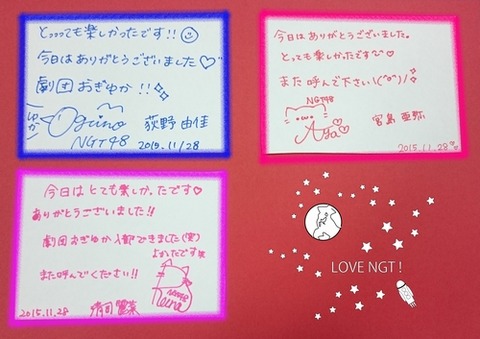 とっっっても楽しかったです!!
今日はありがとうございました♡
劇団おぎゆか!!
Ogino
荻野 由佳
NGT48
2015.11/28
今日はありがとうございました。
とっても楽しかったです♡
また呼んで下さい\(^o^)/
NGT48
Aya
宮島 亜弥
2015.11.28
今日はとても楽しかったです♡
ありがとうございました!!
劇団おぎゆか入部できました(笑)
よかったです
また呼んでください!!
Reina
2015.11.28
清司 麗菜
LOVE NGT!